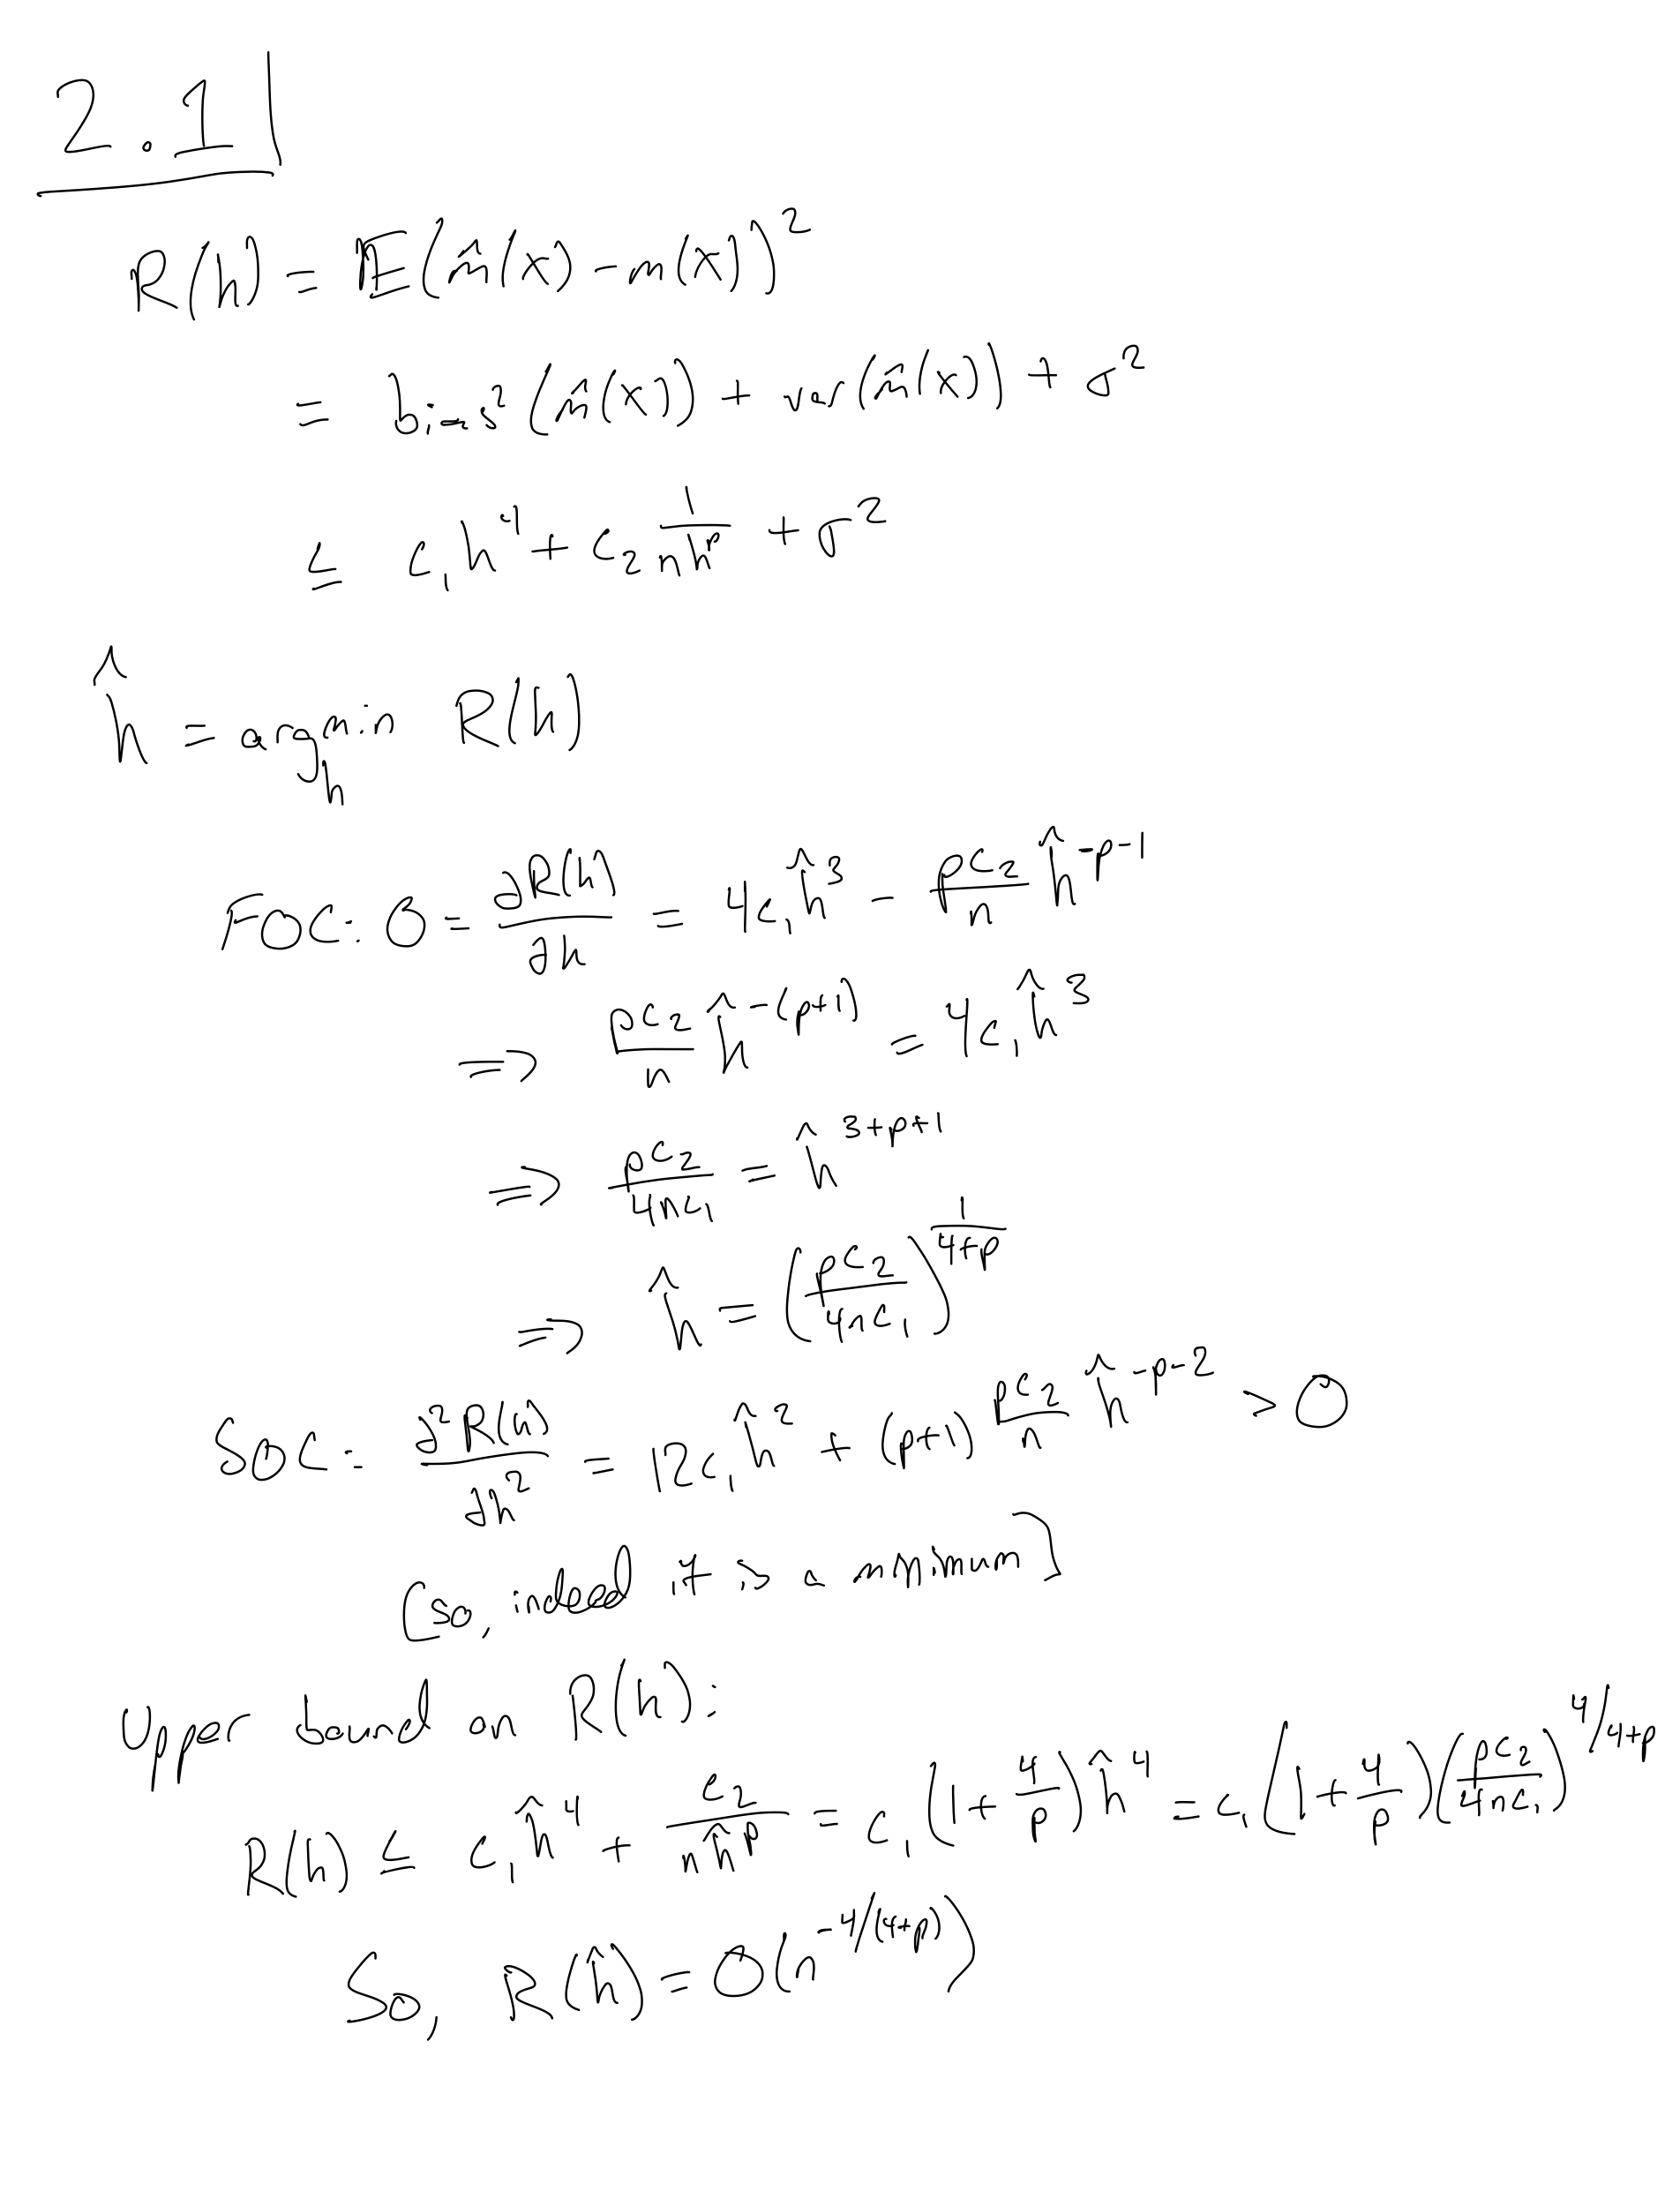 2.1
R(h) = 𝔼(m̂(x) − m(x))²
= bias²(m̂(x)) + var(m̂(x)) + σ²
≤ c₁h⁴ + c₂ 1/(nhᵖ) + σ²
ĥ = argmin_h R(h)
FOC: 0 = ∂R(h)/∂h = 4c₁ĥ³ − (pc₂/n) ĥ^(-p-1)
⇒ (pc₂/n) ĥ^(-(p+1)) = 4c₁ĥ³
⇒ pc₂/(4nc₁) = ĥ^(3+p+1)
⇒ ĥ = (pc₂/(4nc₁))^(1/(4+p))
SOC: ∂²R(h)/∂h² = 12c₁ĥ² + (p+1) (pc₂/n) ĥ^(-p-2) > 0
(so, indeed it is a minimum)
Upper bound on R(h):
R(h) ≤ c₁ĥ⁴ + c₂/(nĥᵖ) = c₁(1 + 4/p)ĥ⁴ = c₁(1 + 4/p)(pc₂/(4nc₁))^(4/4+p)
So, R(ĥ) = O(n^(-4/(4+p)))